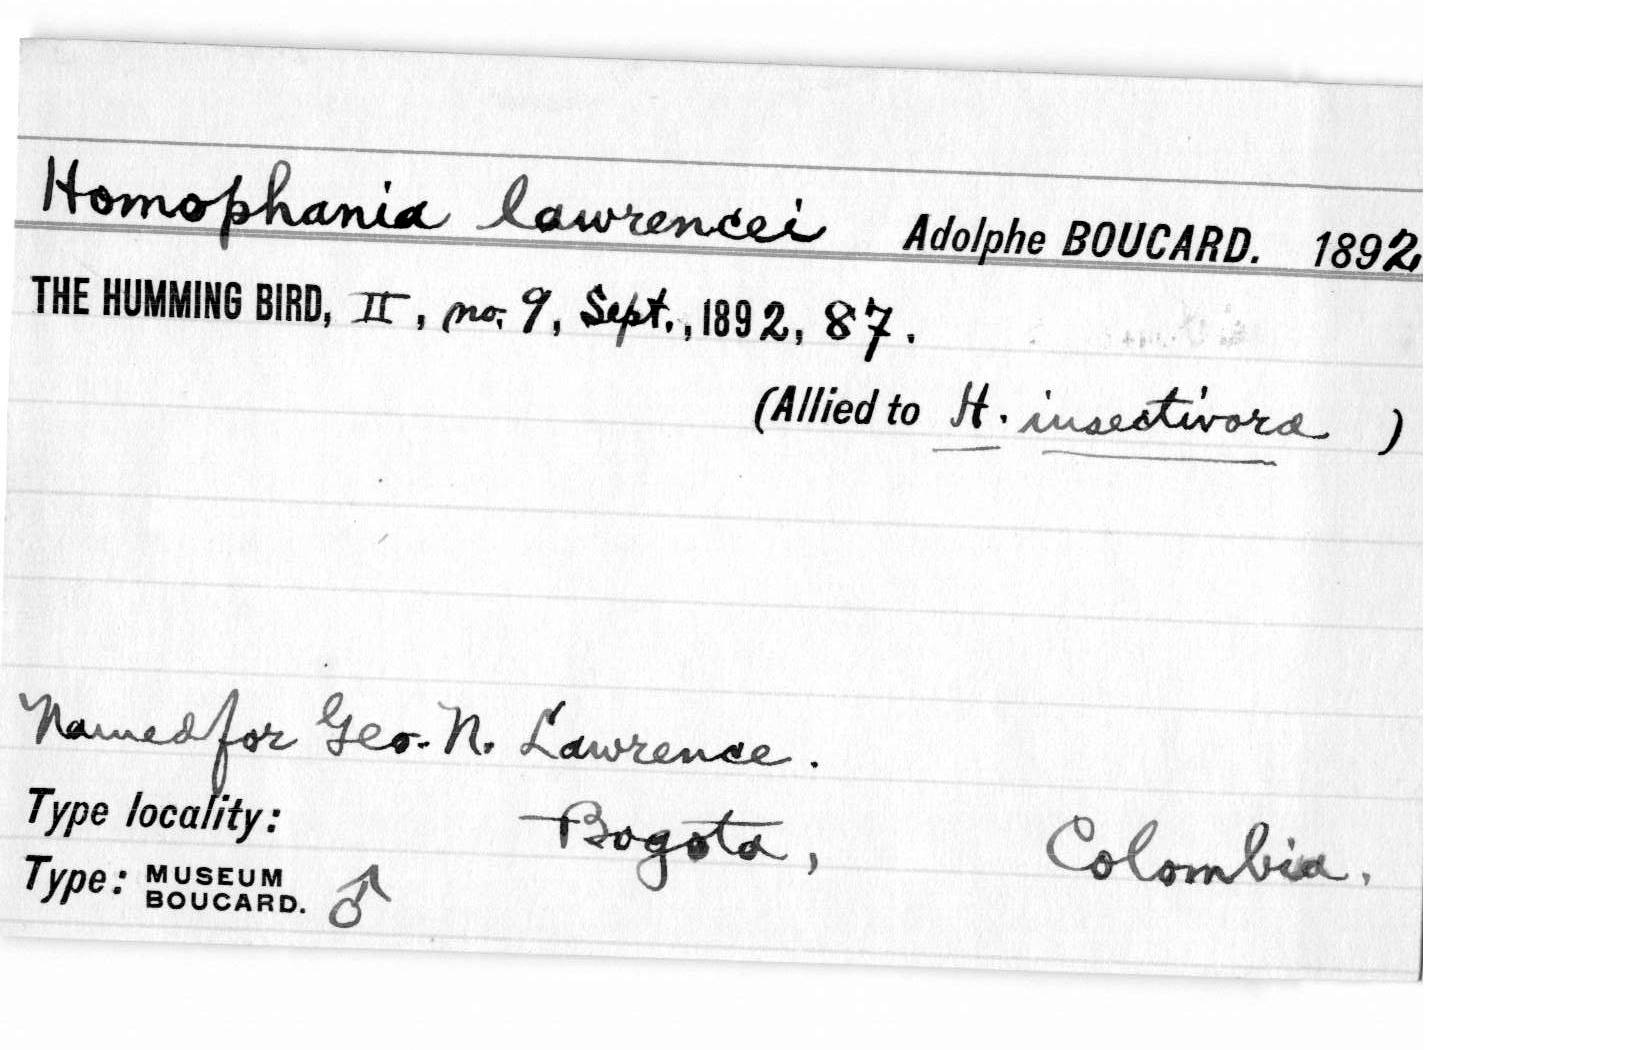 Homophania lawrencei Adolphe BOUCARD. 1892
THE HUMMING BIRD, II, no. 9, Sept., 1892, 87.
(Allied to H. insectivora )
Named for Geo. N. Lawrence.
Type locality: Bogota, Colombia.
Type: MUSEUM BOUCARD. ♂